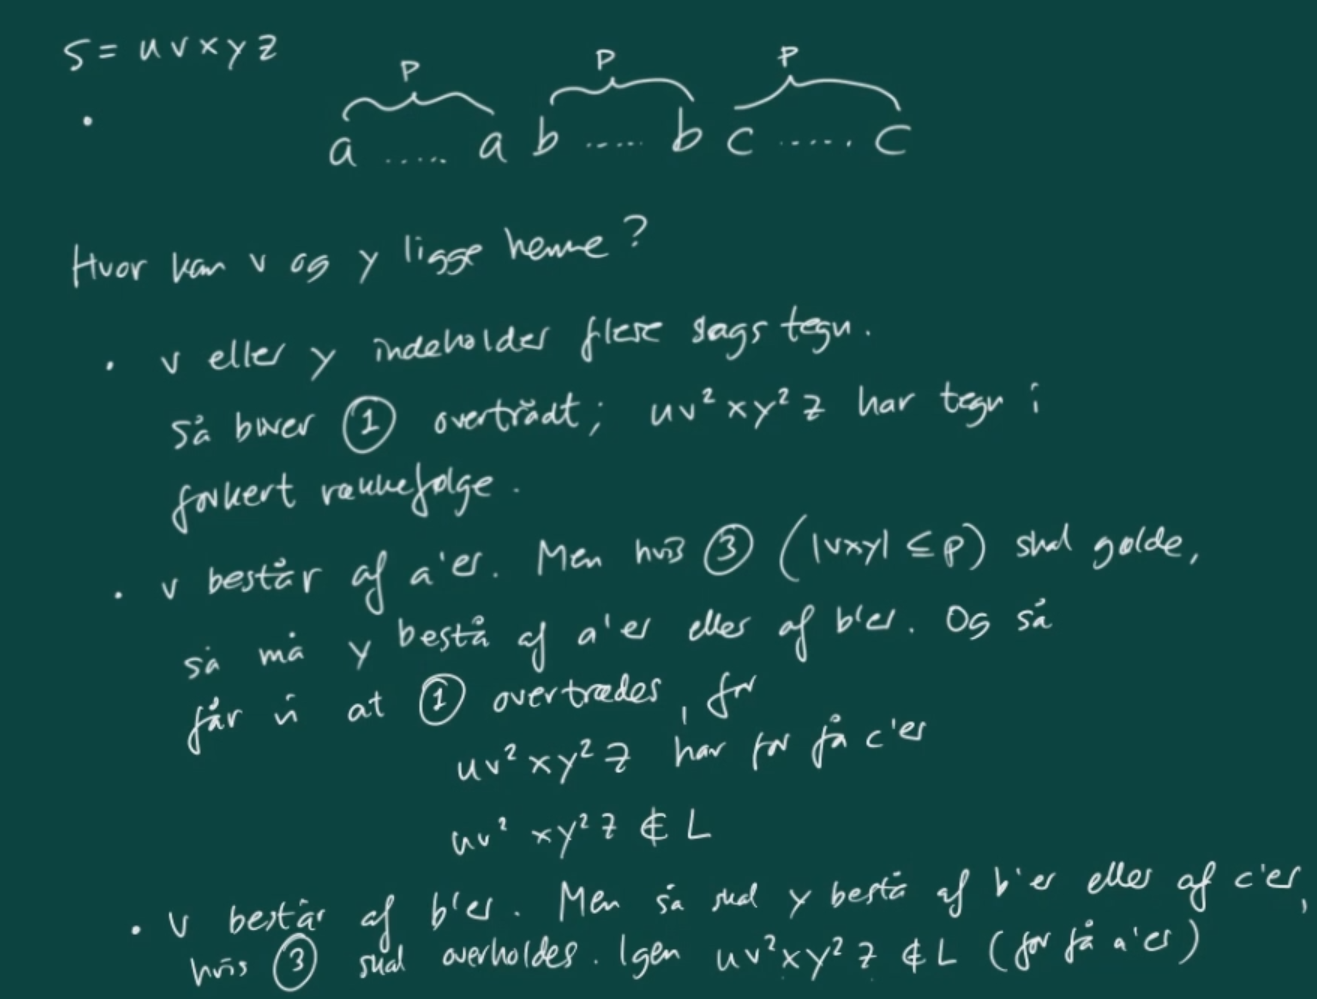 S = uvxyz
p p p
a ..... a b ..... b c ..... c
Hvor kan v og y ligge henne?
• v eller y indeholder flere slags tegn.
Så bliver ① overtrådt; uv²xy²z har tegn i
forkert rækkefølge.
• v består af a'er. Men hvis ③ (|vxy| ≤ p) skal gælde,
så må y bestå af a'er eller af b'er. Og så
får vi at ① overtrædes, for
uv²xy²z har for få c'er
uv²xy²z ∉ L
• v består af b'er. Men så skal y bestå af b'er eller af c'er,
hvis ③ skal overholdes. Igen uv²xy²z ∉ L (for få a'er)